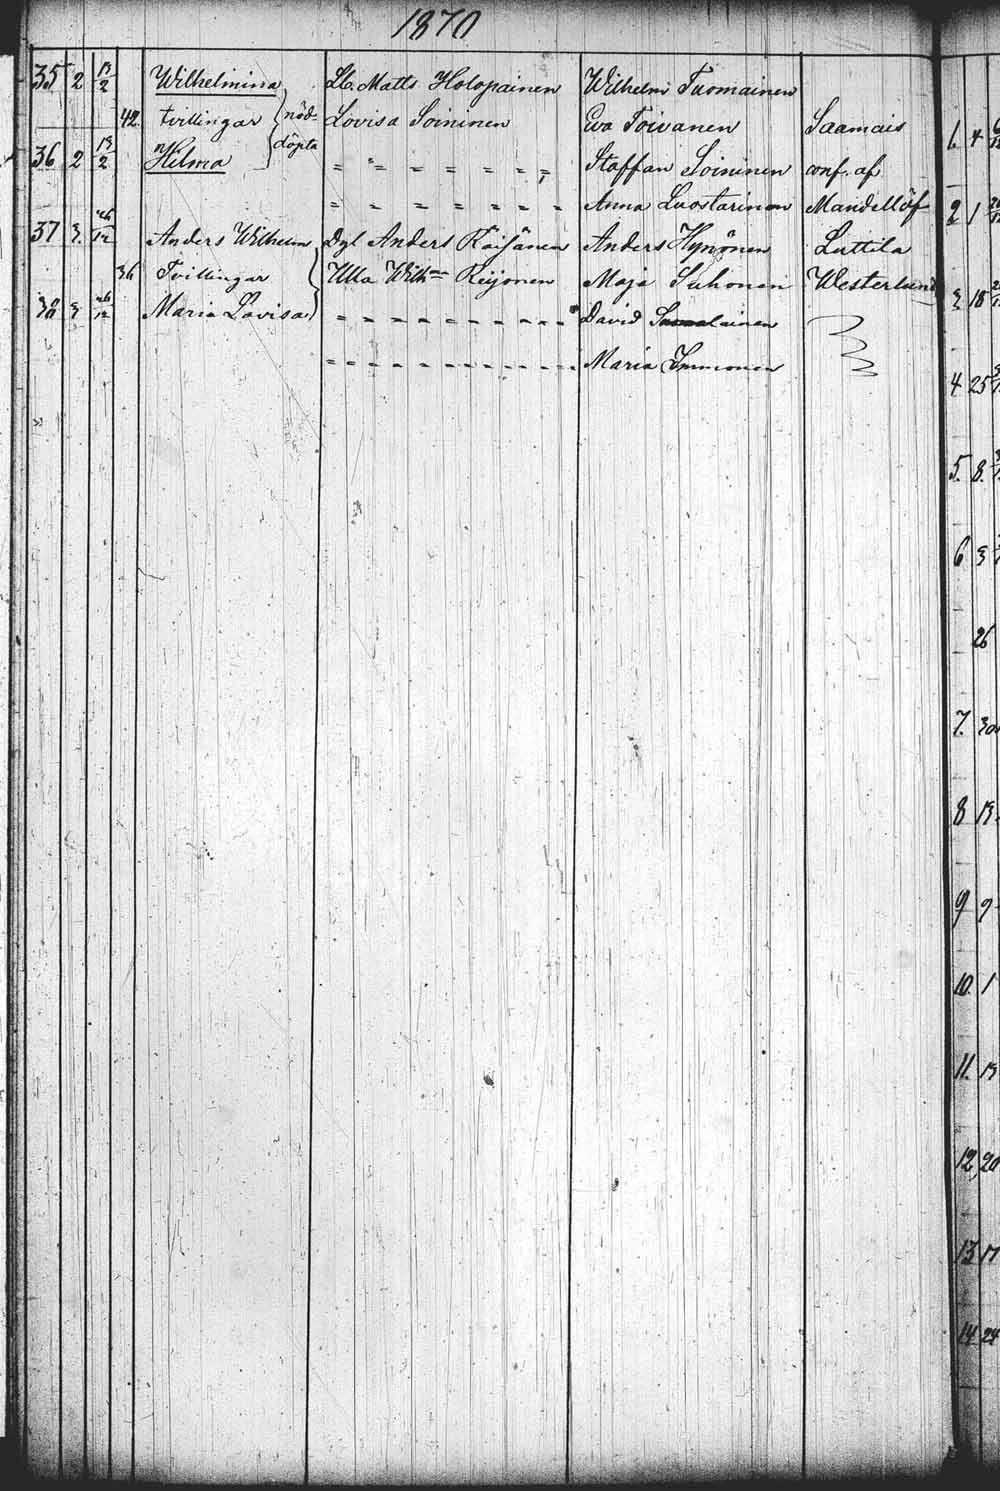 1870
35 2 13/2 Wilhelmina Lb. Matts Holopainen Wilhelm Tuomainen
42 tvillingar nöd- Lovisa Soininen Eva Toivanen Saamais
döpta
36 2 13/2 Hilma = = = = = = = Staffan Soininen conf. af
= = = = = = = Anna Luostarinen Mandellöf
37 3. 26/12 Anders Wilhelm Dgl Anders Räisänen Anders Hynönen Luttila
36 Tvillingar Ulla Wilhna Reijonen Maja Suhonen Westerlund
38 3 26/12 Maria Lovisa = = = = = = = = = = David
= = = = = = = = = = Maria Immonen
1. 4
2 1
3 18
4 25
5. 8.
6 3
26
7. 30
8 13
9 9
10. 1
11. 13
12, 20
13 17
14 24